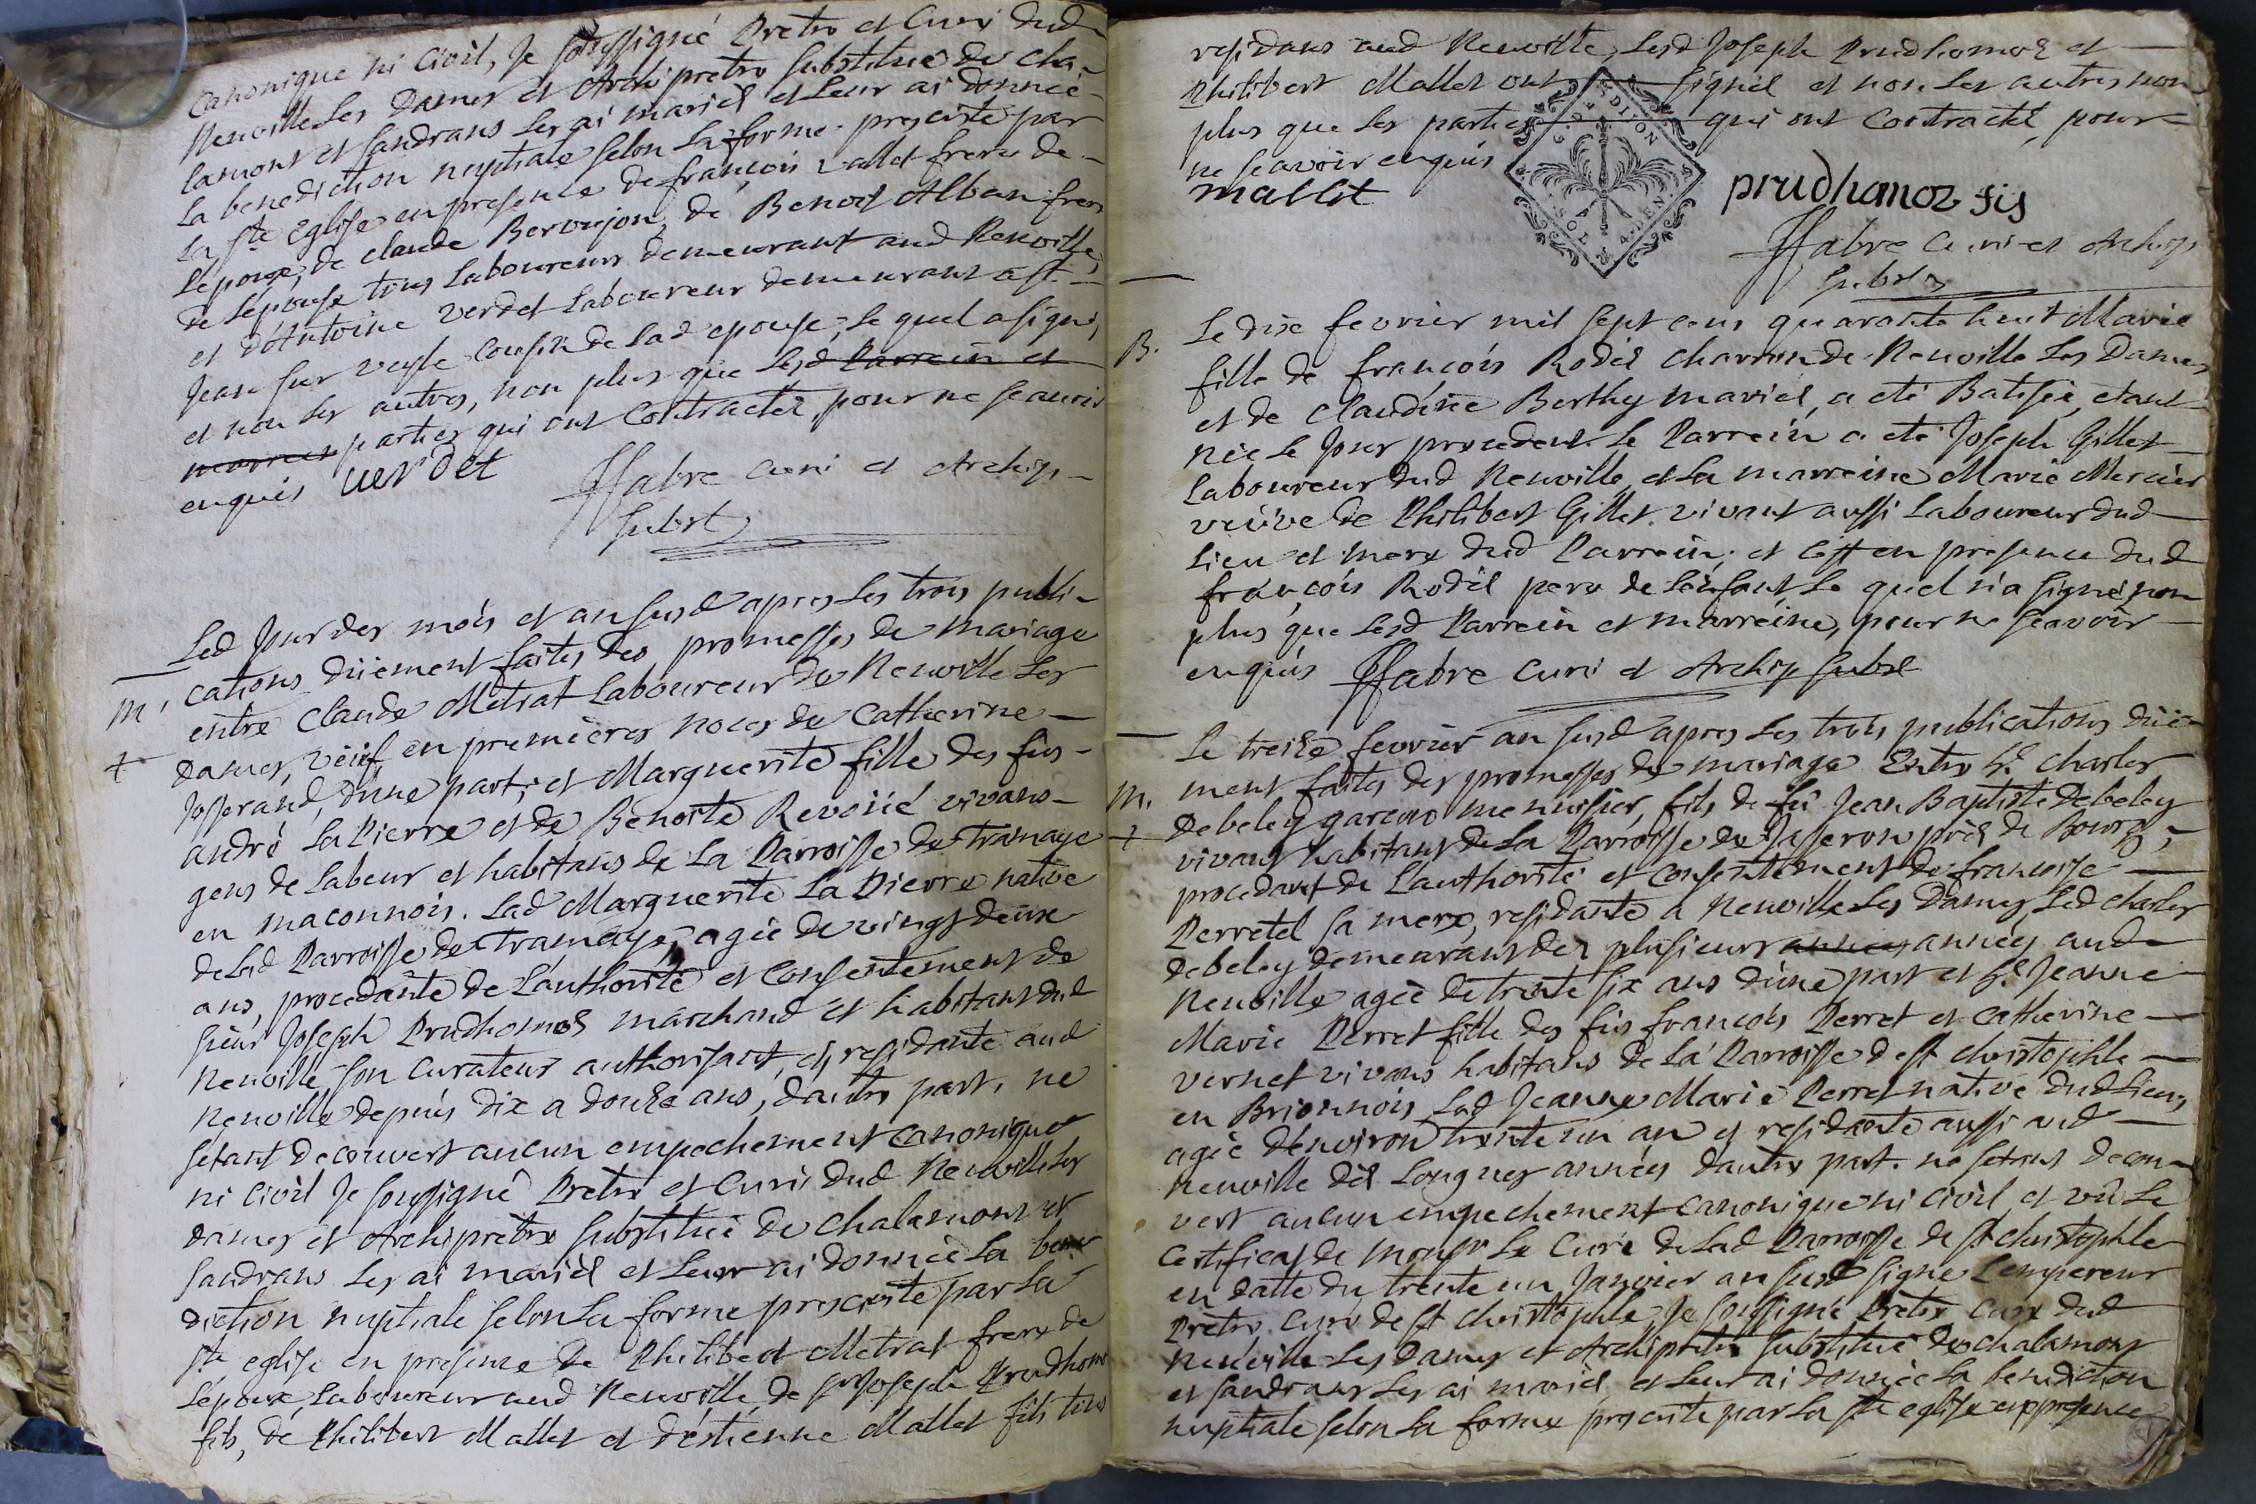 Canonique ni Civil, Je soussigné Pretre et Curé dud
Neuville Les Dames et Archipretre substitué de Cha-
lamont et Sandrans les ai mariés et leur ai donneé
La benediction nuptiale selon la forme prescrite par
la ste Eglise en presence de françois vallet frere de
Lepoux, de claude Beroujon, de Benoit Alban frere
de Lepouse tous Laboureurs demeurant aud Neuville,
et d'Antoine verdet Laboureur demeurant a st
Jean sur veyle cousin de lad epouse, le quel a signé,
et non les autres, non plus que lesd Parrein et
marreine parties qui ont Contracté, pour ne scavoir
enquis verdet
ffabre curé et Archip
subst
Led Jour des mois et an susd apres Les trois publi-
m. cations düement faites des promesses de mariage
entre Claude Metrat Laboureur de Neuville Les
+ Dames, veuf en premières noces de Catherine
Josserand, d'une part; et Marguerite fille des fus
andré La Pierre et de Benoite Revoiié vivans
gens de Labeur et habitans de La Parroisse de tramaye
en maconnois. Lad Marguerite La Pierre native
de Lad Parroisse de tramaye, ageé de vingt deux
ans, procedante de L'authorité et Consentement de
sieur Joseph Prudhomoz marchand et habitant dud
Neuville, son Curateur authorisant, et residante aud
Neuville depuis dix a douze ans, d'autre part. ne
setant decouvert aucun empechement canonique
ni civil Je soussigné Pretre et Curé dud Neuville Les
dames et Archiprêtre substitué de Chalamont et
Sandrans les ai mariés et Leur ai donneé La bene
diction nuptiale selon La forme prescrite par La
ste eglise en presence de Philibert Metrat frere de
Lépoux, Laboureur aud Neuville, de sr Joseph Prudhomo
fils, de Philibert Mallet et d'estienne Mallet fils tous
residans aud Neuville, Lesd Joseph Prudhomoz et
Philibert Mallet ont signés et non Les autres non
plus que Les parties qui ont Contracté, pour
ne scavoir enquis
G. DE DIJON
SOL 4 DEN
mallet
prudhomoz fis
ffabre curé et Archip
subst
B. Le dix fevrier mil sept cens quarante huit Marie
fille de françois Rodet charron de Neuville Les Dames
et de Claudine Berthy mariés, a eté Batisée, etant
Née le Jour precedent. Le Parrein a eté Joseph Gillet
Laboureur dud Neuville et La marreine Marie Mercier
veüve de Philibert Gillet vivant aussi Laboureur dud
Lieu et mere dud Parrein; et c'est en presence dud
françois Rodet pere de Lenfant Le quel n'a signé non
plus que Lesd Parrein et marreine, pour ne scavoir
enquis ffabre curé et Archip subst
Le treize fevrier an susd apres Les trois publications düe-
m. ment faites des promesses de mariage Entre sr. charles
+ Debeley garcon menuisier, fils de fû Jean Baptiste Debeley
vivant habitant de La Parroisse de Jasseron près de Bourg,
procedant de L'authorité et Consentement de françoise
Perretel sa mere, residante a Neuville Les Dames, Led charles
debeley demeurant dez plusieurs annees années aud
Neuville ageé de trente six ans d'une part et hte Jeanne
Marie Perret fille des fus françois Perret et Catherine
vernet vivans habitans de La Parroisse de st Christophle
en Brionnois Lad Jeanne Marie Perret native dud Lieu,
ageé d'environ trente un an et residante aussi aud
Neuville dès Longues années d'autre part. ne setant decou-
vert aucun empechement canonique ni civil, et vû Le
Certificat de monsr Le Curé de Lad Parroisse de st christophle
en datte du trente un Janvier an susd signé Lempereur
Pretre Curé de st christophle, Je soussigné Pretre Curé dud
Neuville Les Dames et Archipretre substitué de chalamont
et sandrans Les ai mariés, et Leur ai donneé La benediction
nuptiale selon La forme prescrite par La ste eglise en presence